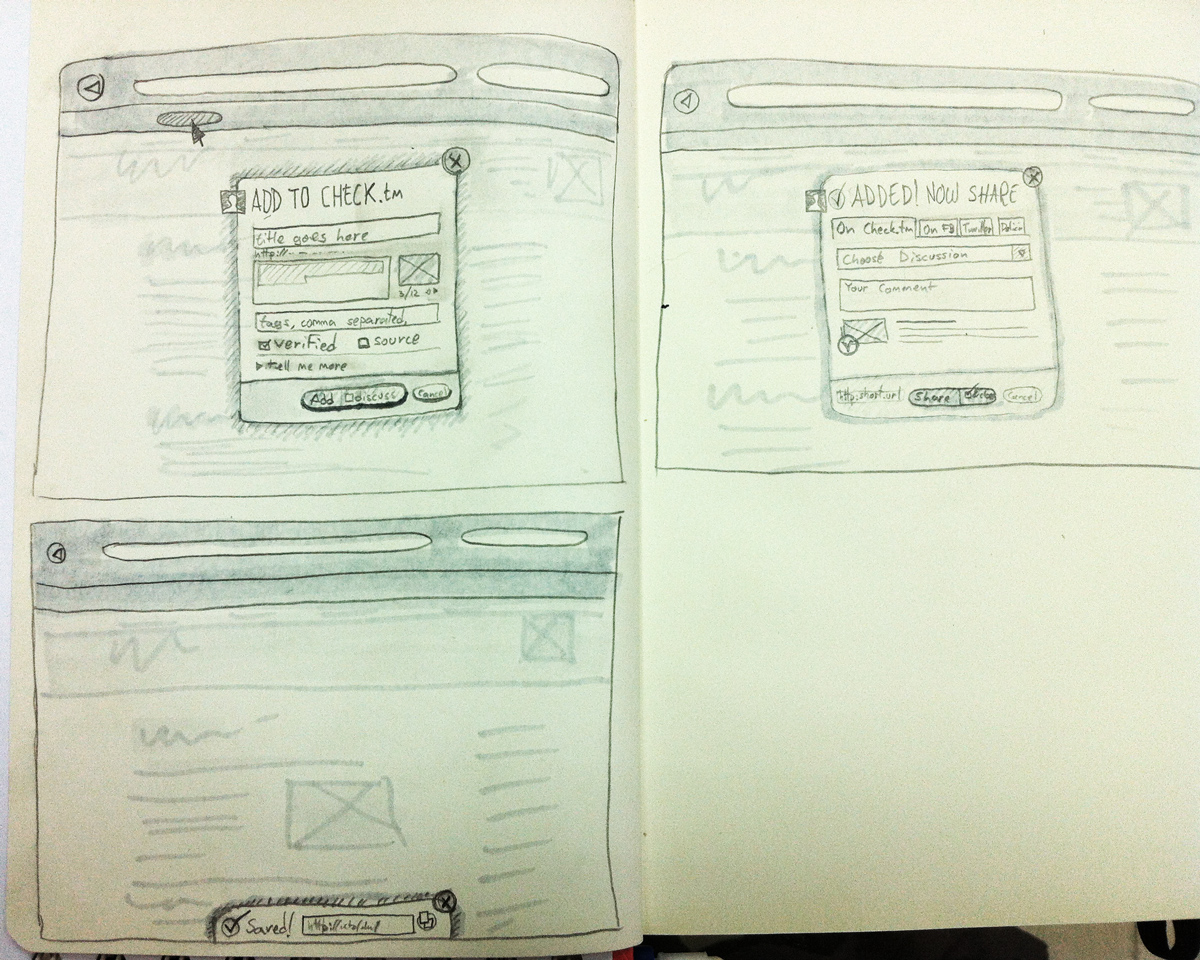 ADD TO CHECK.tm
title goes here
http://
3/12
tags, comma separated,
verified source
tell me more
Add discuss Cancel
ADDED! NOW SHARE
On Check.tm On FB Twitter
Choose Discussion
Your Comment
http:short.url Share Cancel
Saved!